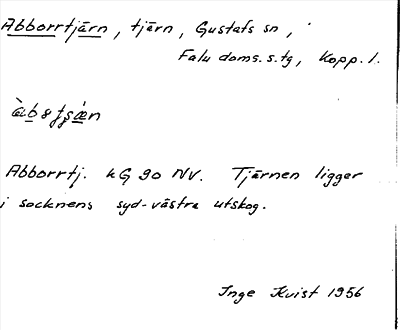 Abborrtjärn, tjärn, Gustafs sn,
Falu doms.s.tg, Kopp. l.
Abborrtj. kG 90 NV. Tjärnen ligger
i socknens syd-västra utskog.
Inge Kvist 1956